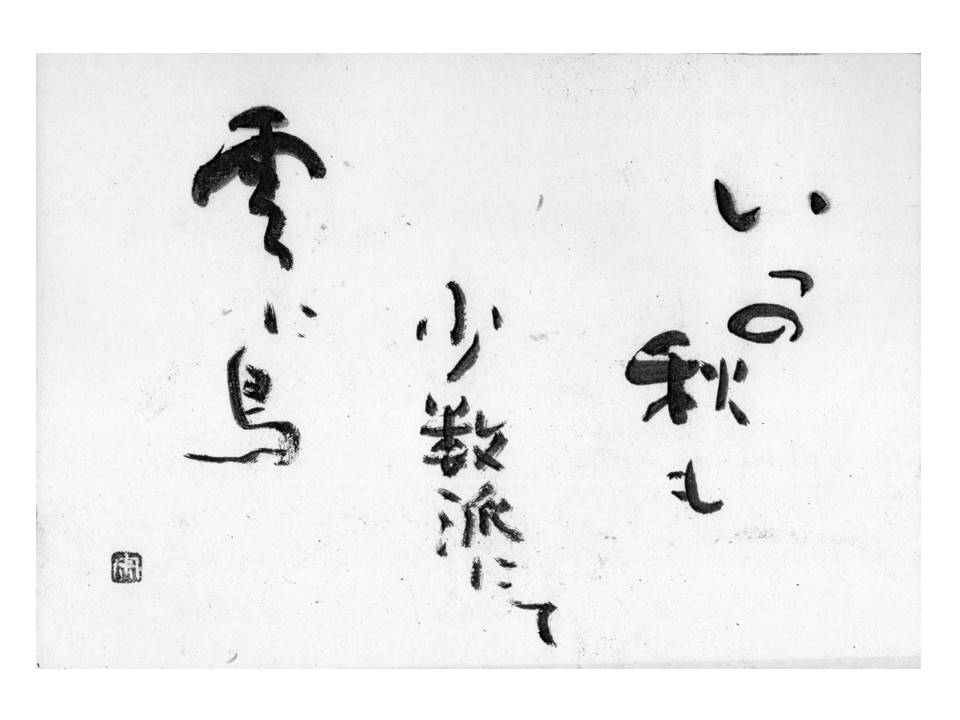 いつの秋も
少数派にて
雲に鳥